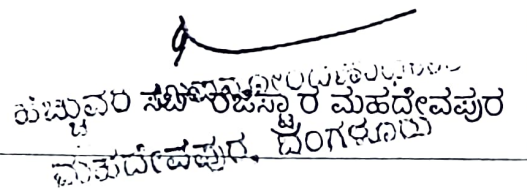 ಹೆಚ್ಚುವರಿ ಸಬ್ ರಿಜಿಸ್ಟ್ರಾರ ಮಹದೇವಪುರ
ಮಹದೇವಪುರ, ಬೆಂಗಳೂರು